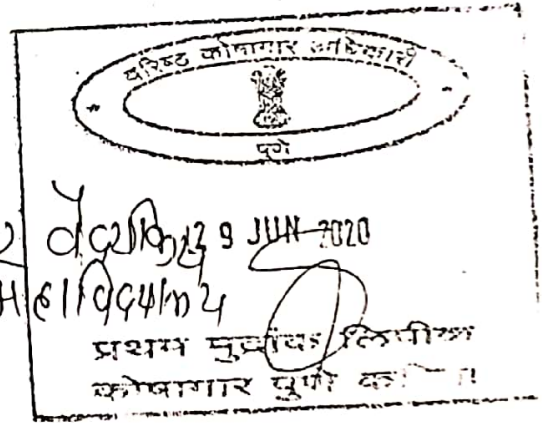 वरिष्ठ कोषागार अधिकारी
पुणे
वैद्यकिय 29 JUN 2020
महाविद्यालय
प्रथम मुद्रांक लिपीक
कोषागार पुणे